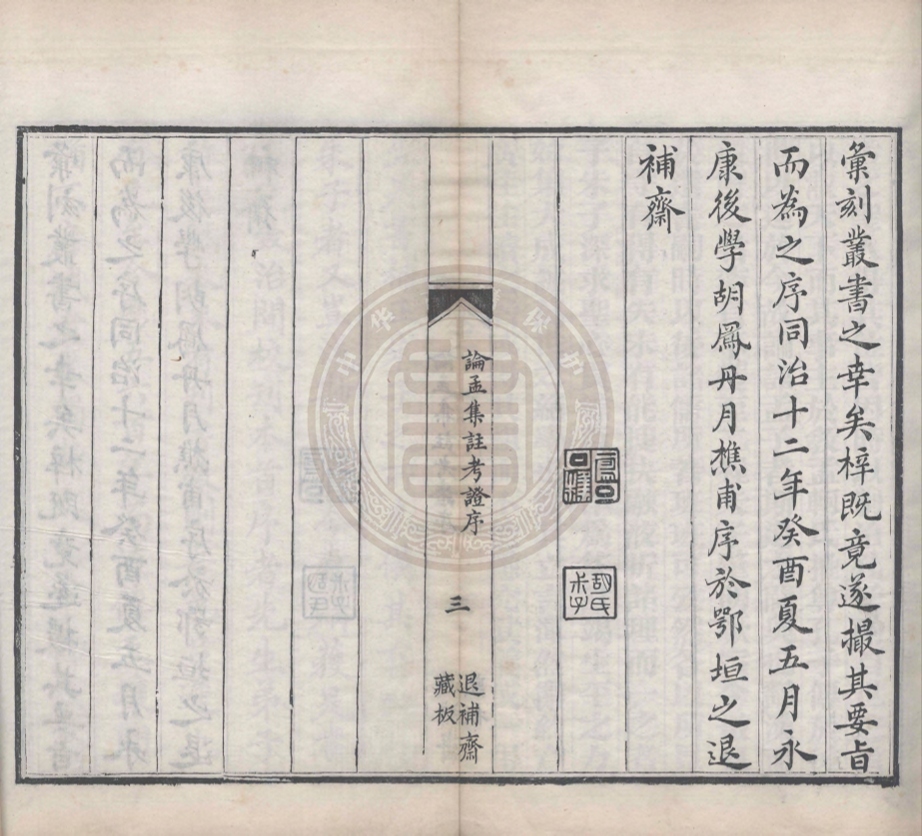 彙刻叢書之幸矣梓既竟遂撮其要旨
而為之序同治十二年癸酉夏五月永
康後學胡鳳丹月樵甫序於鄂垣之退
補齋
論孟集註考證序
三
退補齋
藏板